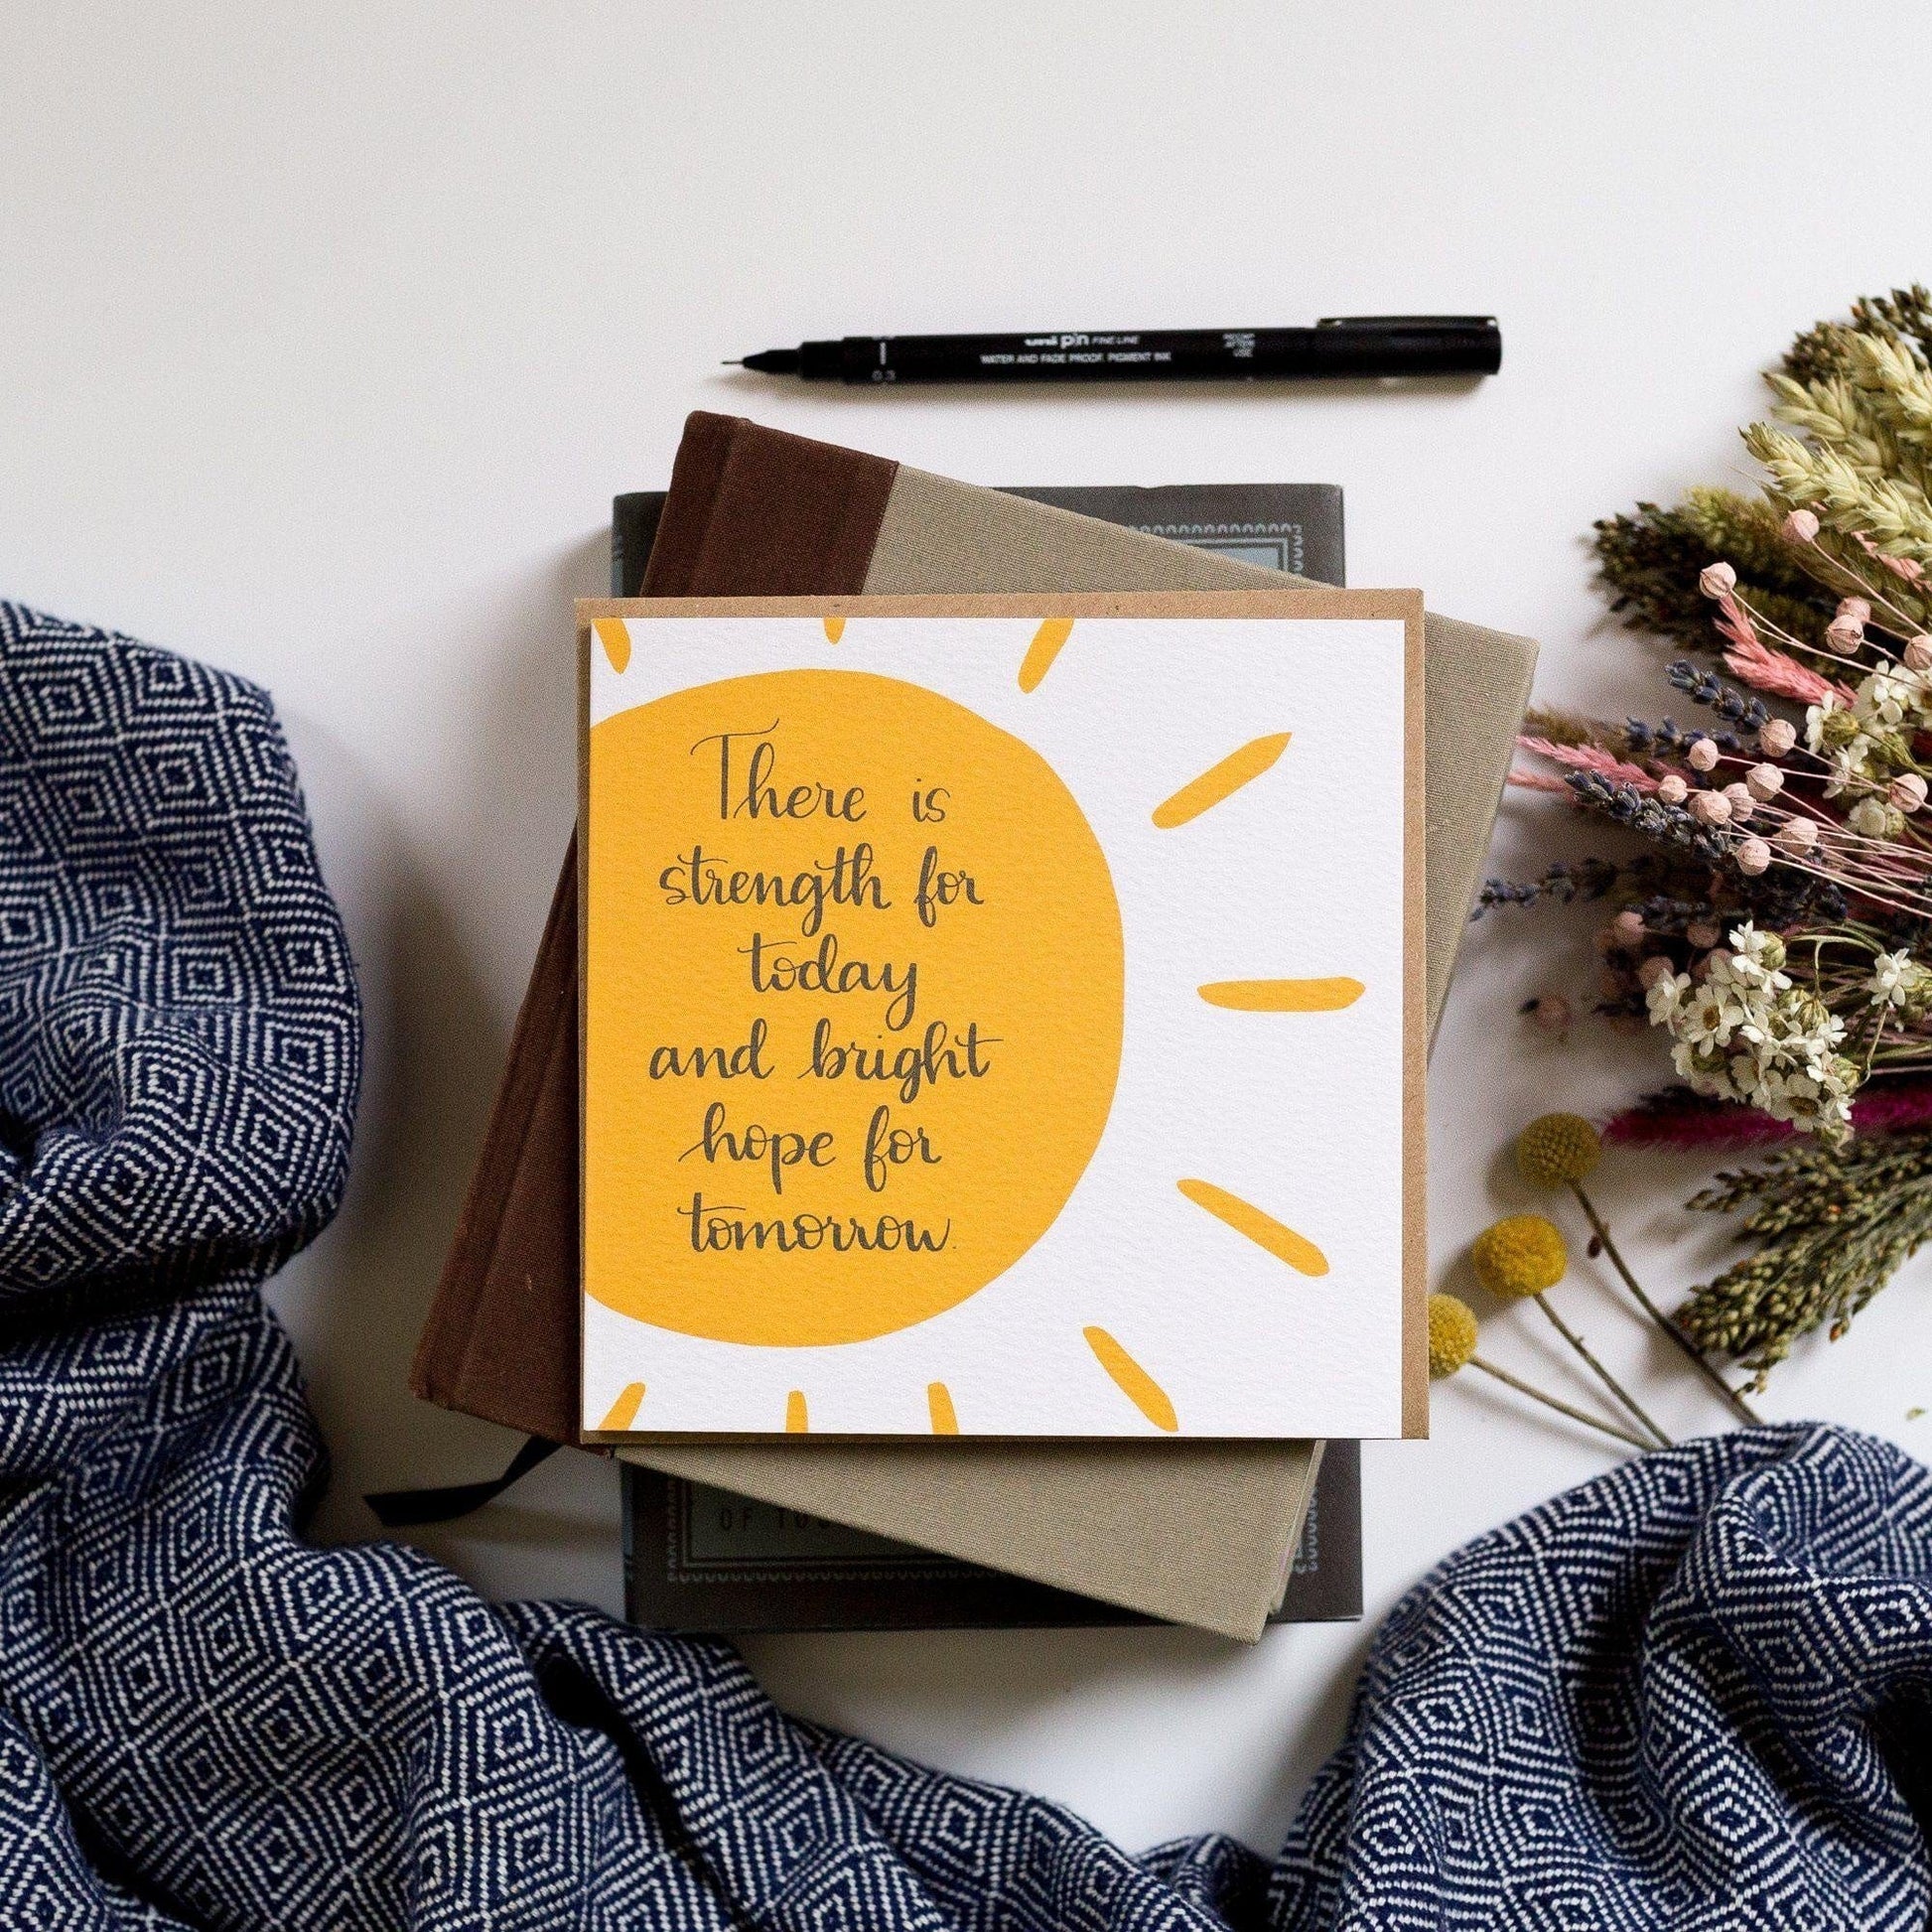 uni pin FINE LINE
WATER AND FADE PROOF, PIGMENT INK
0.3
RECAP
AFTER
USE
There is
strength for
today
and bright
hope for
tomorrow.
OF